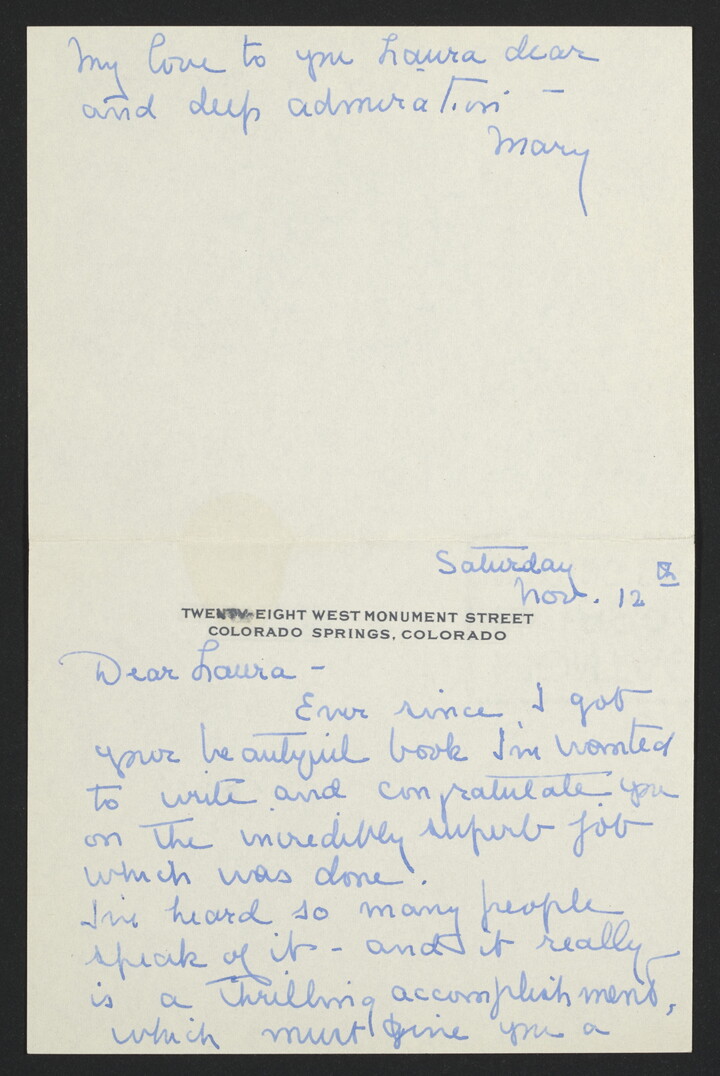 My love to you Laura dear
and deep admiration -
Mary
Saturday
Nov. 12th
TWENTY-EIGHT WEST MONUMENT STREET
COLORADO SPRINGS, COLORADO
Dear Laura -
Ever since I got
your beautyful book I'm wanted
to write and congratulate you
on the incredibly superb job
which was done.
I've heard so many people
speak of it - and it really
is a thrilling accomplishment,
which must give you a